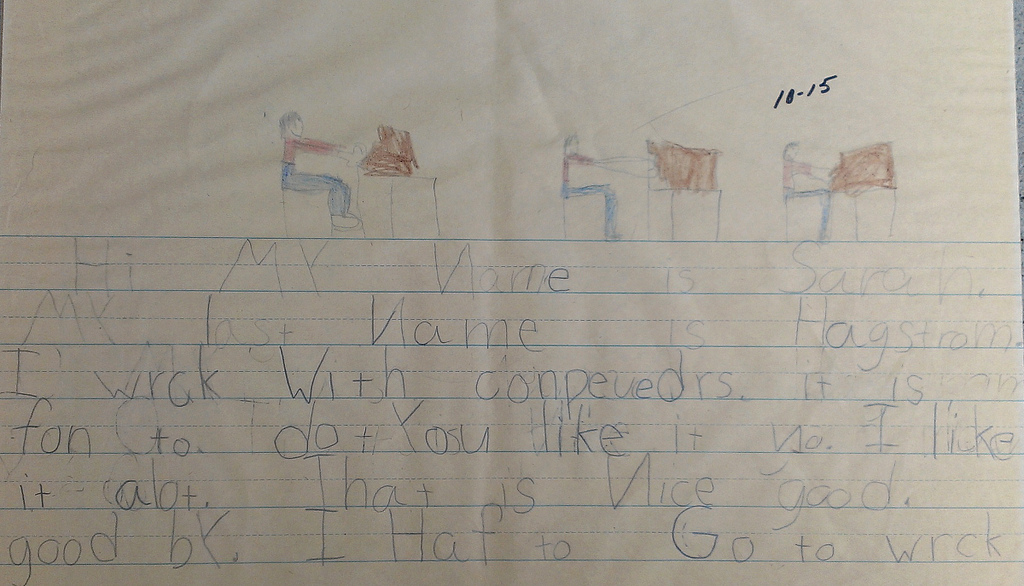 10-15
Hi MY Name is Sarah.
MY last Name is Hagstrom.
I wrck With conpeuedrs. it is
fon to. do+ You like it No. I licke
it alot. That is Nice good.
good bY. I Haf to Go to wrck